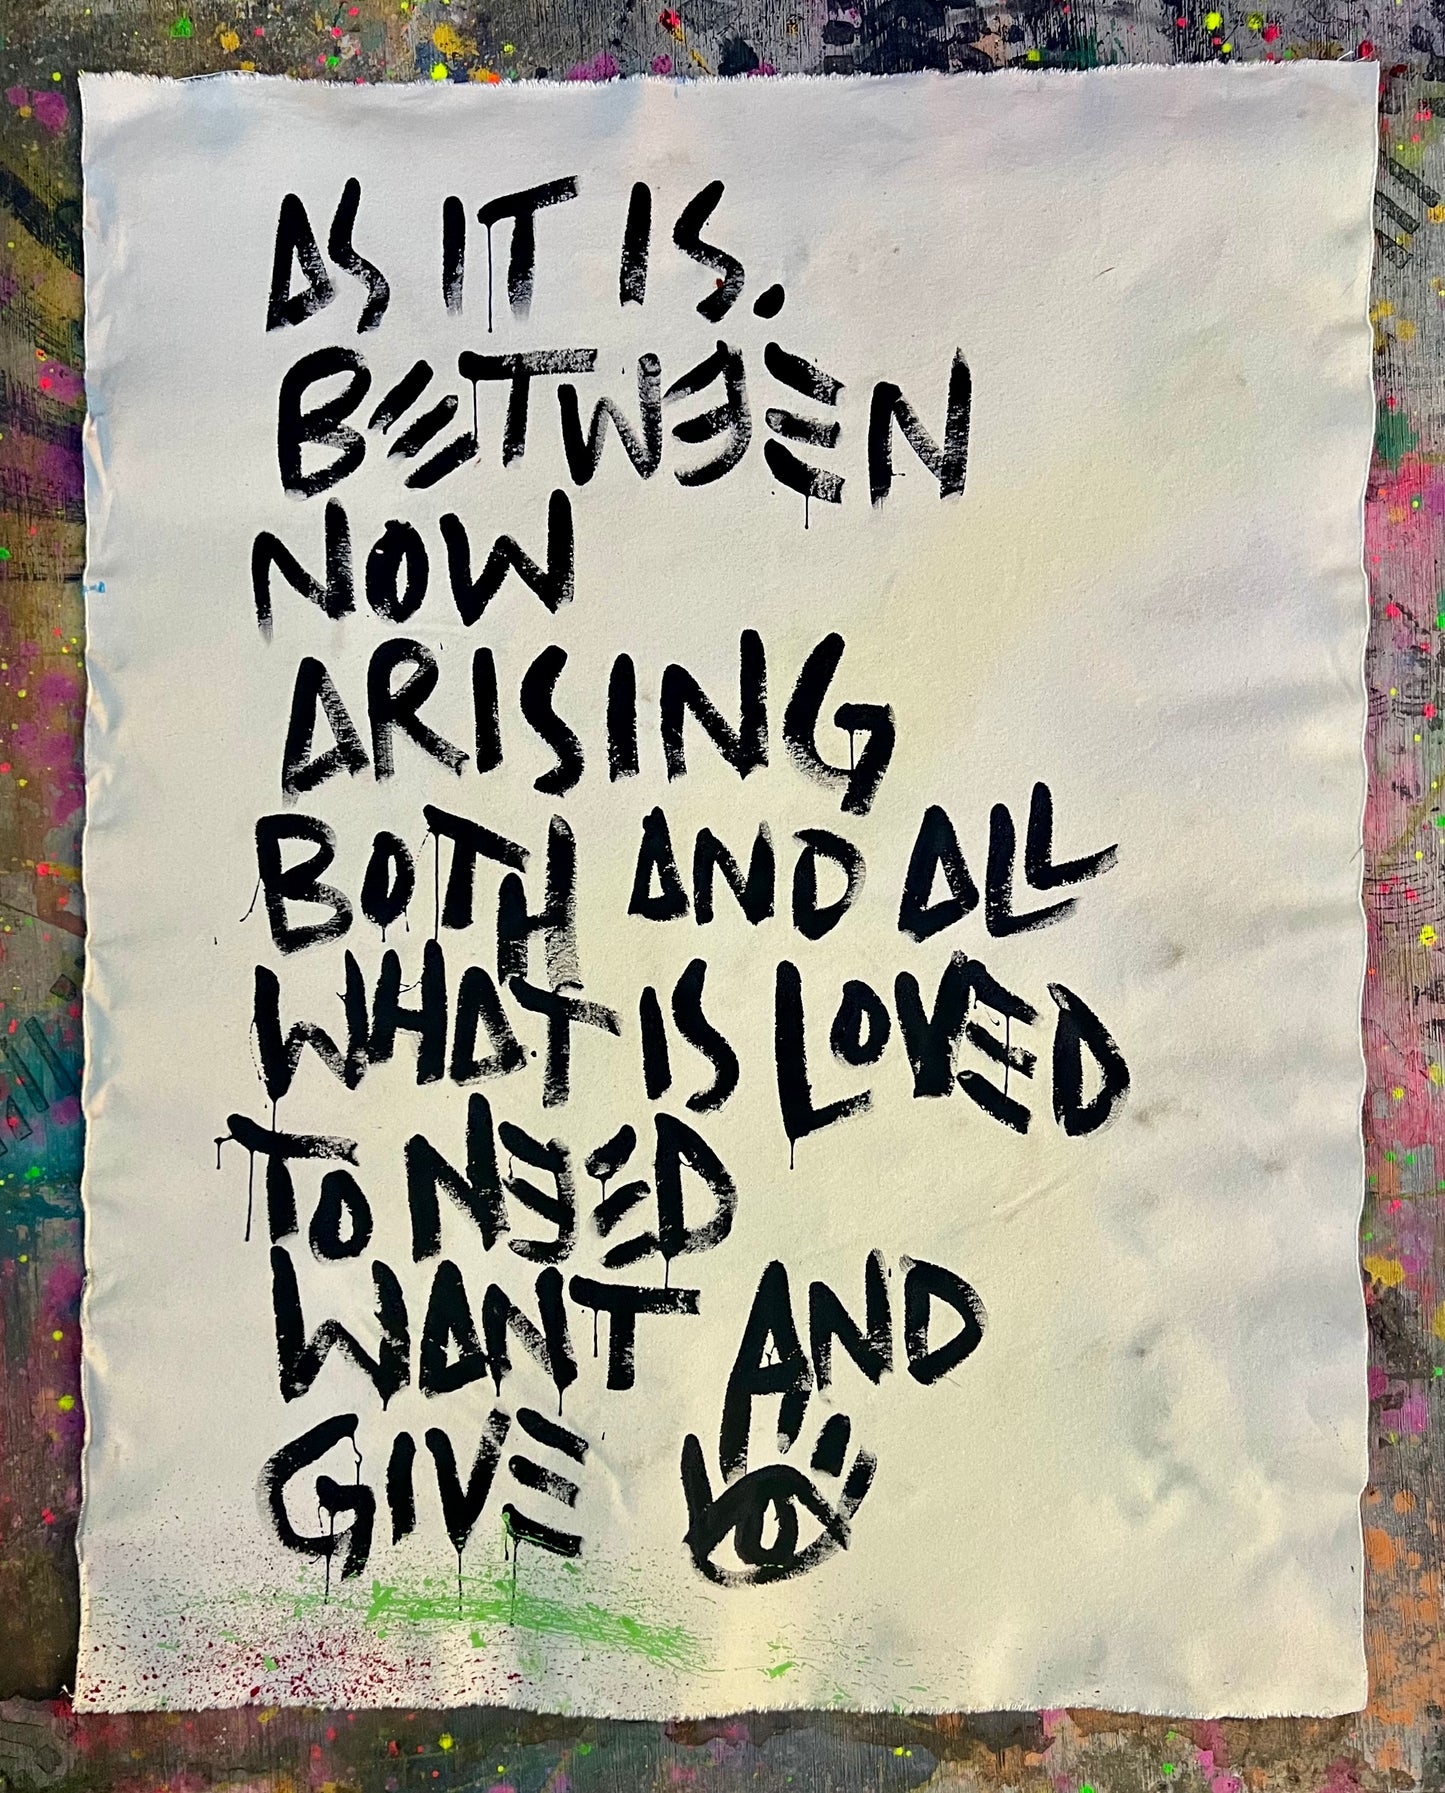 AS IT IS.
BETWEEN
NOW
ARISING
BOTH AND ALL
WHAT IS LOVED
TO NEED
WANT AND
GIVE